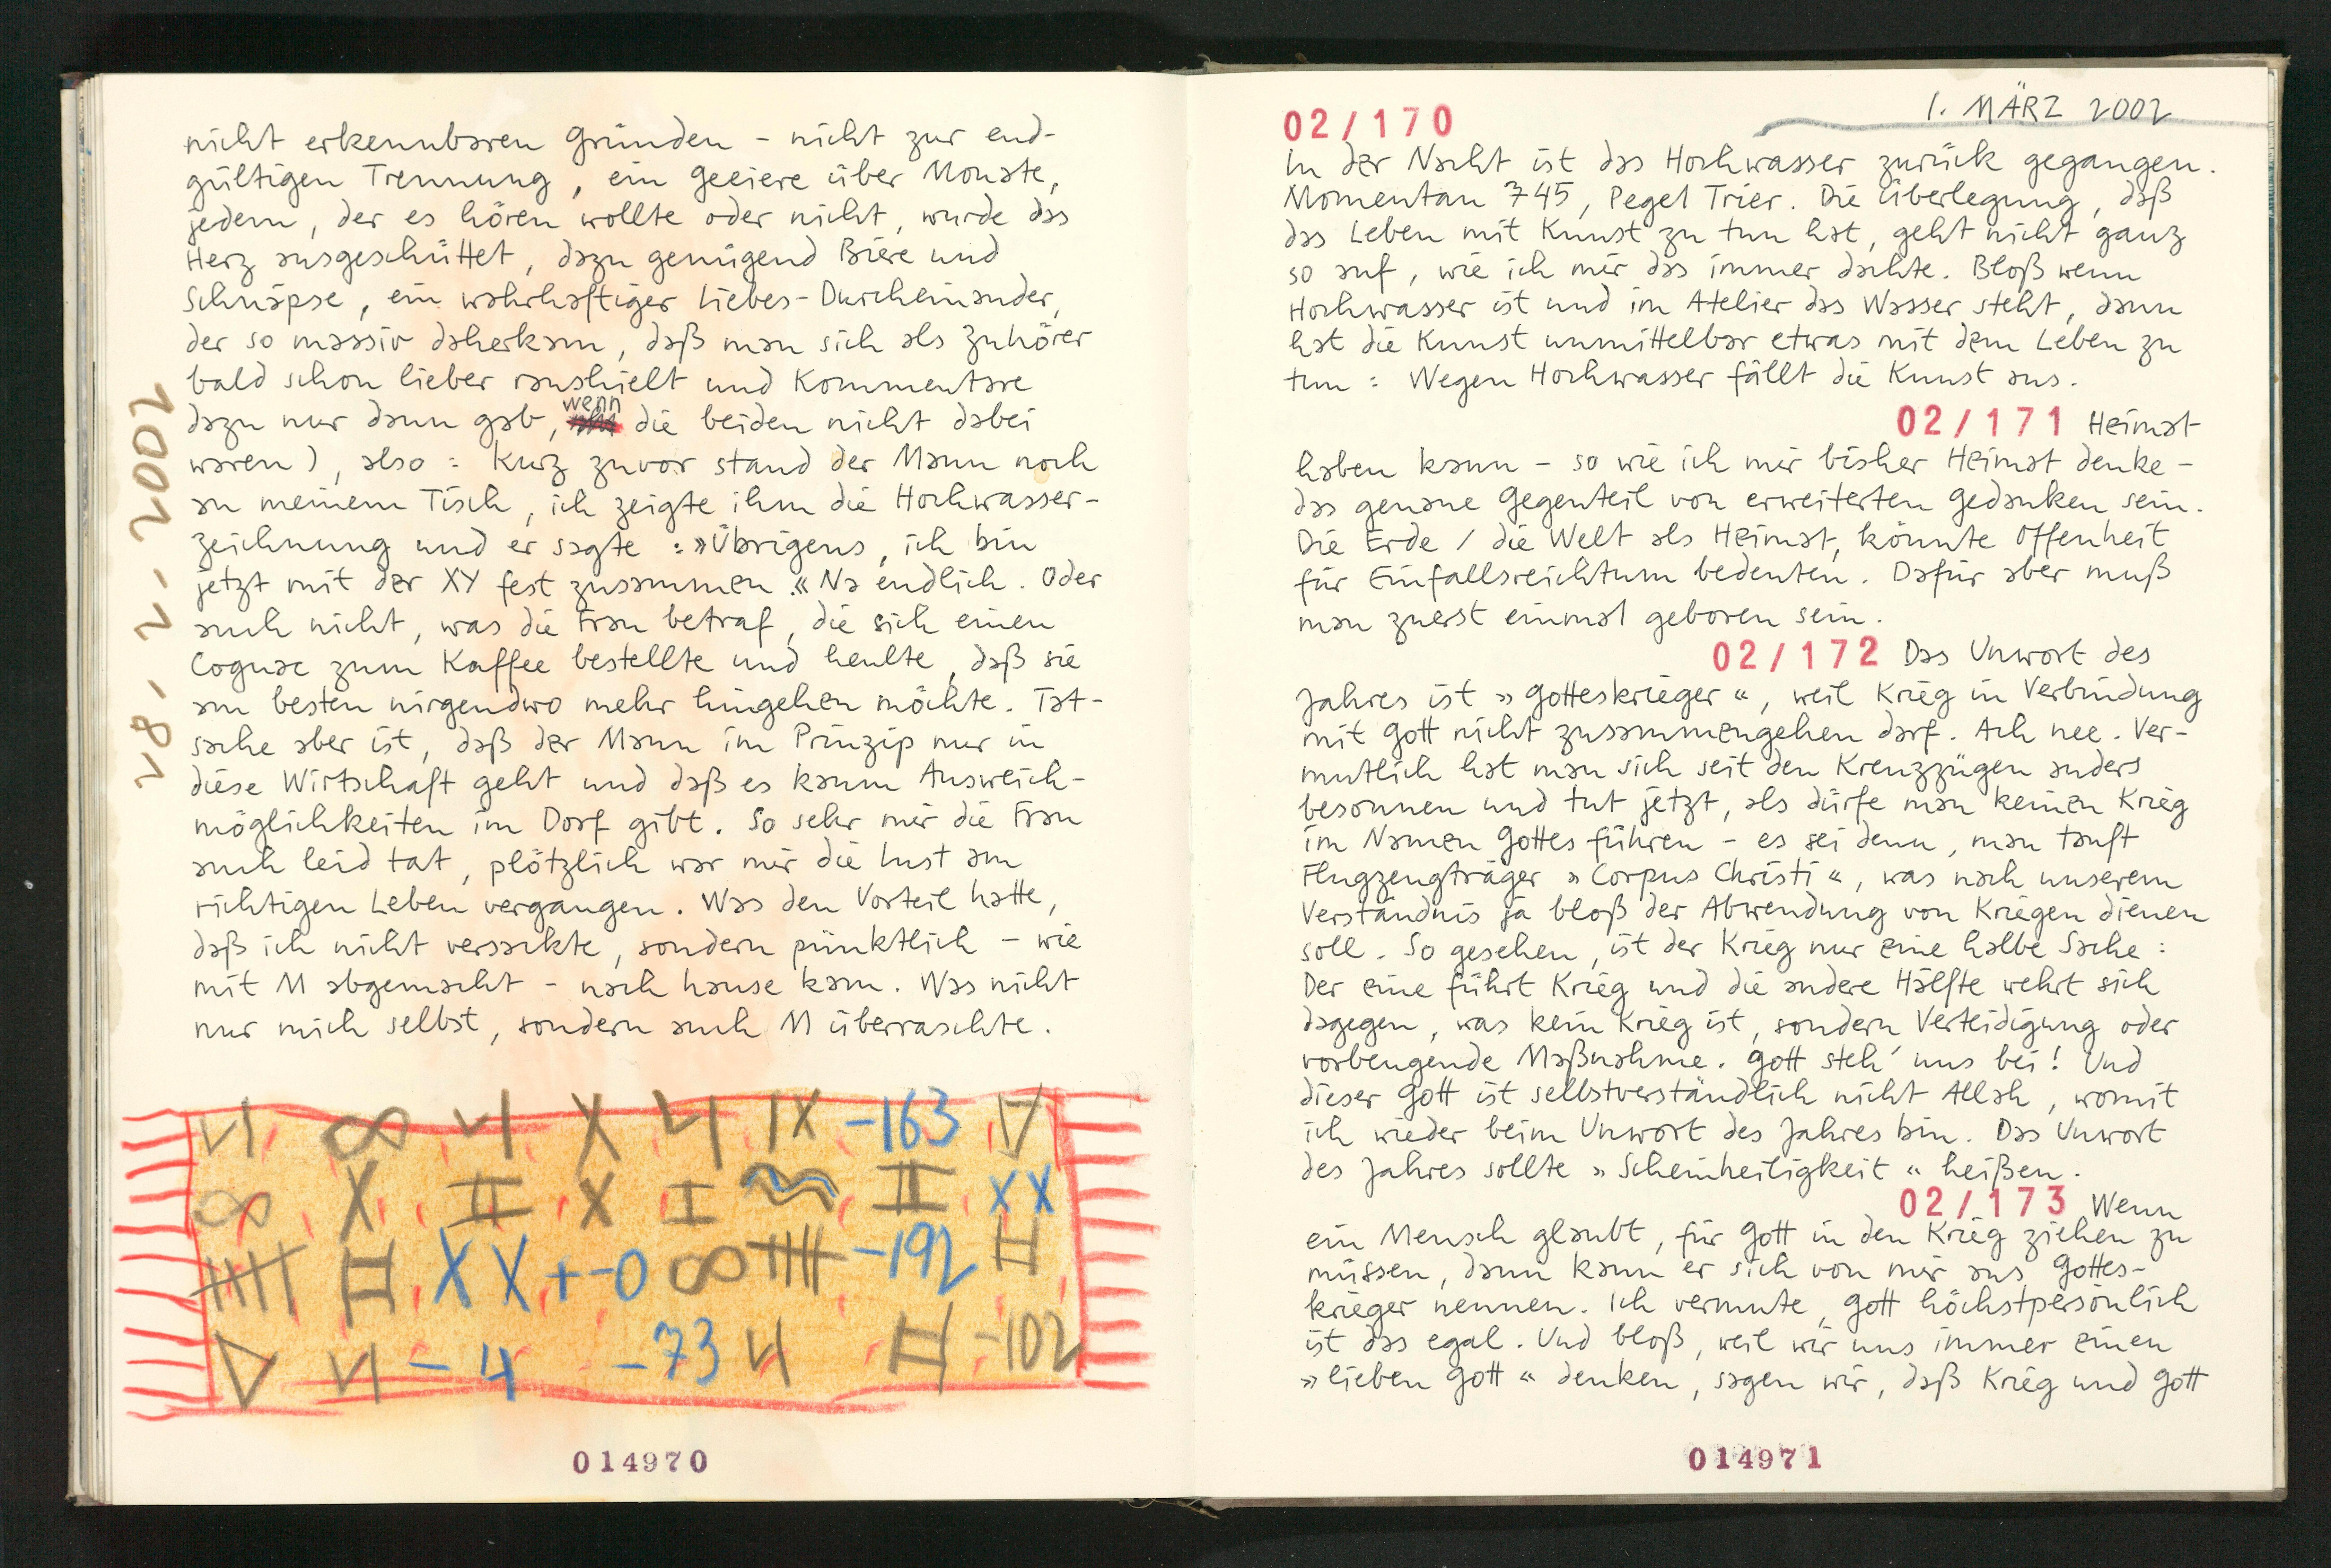 28. 2. 2002
nicht erkennbaren Gründen - nicht zur end-
gültigen Trennung, ein Geeiere über Monate,
jedem, der es hören wollte oder nicht, wurde das
Herz ausgeschüttet, dazu genügend Biere und
Schnäpse, ein wahrhaftiger Liebes-Durcheinander,
der so massiv daherkam, daß man sich als Zuhörer
bald schon lieber raushielt und Kommentare
dazu nur dann gab, wenn die beiden nicht dabei
waren), also: Kurz zuvor stand der Mann noch
an meinem Tisch, ich zeigte ihm die Hochwasser-
zeichnung und er sagte: »Übrigens, ich bin
jetzt mit der XY fest zusammen.« Na endlich. Oder
auch nicht, was die Frau betraf, die sich einen
Cognac zum Kaffee bestellte und heulte, daß sie
am besten nirgendwo mehr hingehen möchte. Tat-
sache aber ist, daß der Mann im Prinzip nur in
diese Wirtschaft geht und daß es kaum Ausweich-
möglichkeiten im Dorf gibt. So sehr mir die Frau
auch leid tat, plötzlich war mir die Lust am
richtigen Leben vergangen. Was den Vorteil hatte,
daß ich nicht versackte, sondern pünktlich - wie
mit M abgemacht - nach hause kam. Was nicht
nur mich selbst, sondern auch M überraschte.
∞ X IX -163
∞ X II X I ≈ II XX
XX +-0 ∞ -192
-4 -73 -102
014970
1. MÄRZ 2002
02/170
In der Nacht ist das Hochwasser zurück gegangen.
Momentan 745, Pegel Trier. Die Überlegung, daß
das Leben mit Kunst zu tun hat, geht nicht ganz
so auf, wie ich mir das immer dachte. Bloß wenn
Hochwasser ist und im Atelier das Wasser steht, dann
hat die Kunst unmittelbar etwas mit dem Leben zu
tun: Wegen Hochwasser fällt die Kunst aus.
02/171 Heimat
haben kann - so wie ich mir bisher Heimat denke -
das genaue Gegenteil von erweiterten Gedanken sein.
Die Erde / die Welt als Heimat, könnte Offenheit
für Einfallsreichtum bedeuten. Dafür aber muß
man zuerst einmal geboren sein.
02/172 Das Unwort des
Jahres ist »Gotteskrieger«, weil Krieg in Verbindung
mit Gott nicht zusammengehen darf. Ach nee. Ver-
mutlich hat man sich seit den Kreuzzügen anders
besonnen und tut jetzt, als dürfe man keinen Krieg
im Namen Gottes führen - es sei denn, man tauft
Flugzeugträger »Corpus Christi«, was nach unserem
Verständnis ja bloß der Abwendung von Kriegen dienen
soll. So gesehen, ist der Krieg nur eine halbe Sache:
Der eine führt Krieg und die andere Hälfte wehrt sich
dagegen, was kein Krieg ist, sondern Verteidigung oder
vorbeugende Maßnahme. Gott steh' uns bei! Und
dieser Gott ist selbstverständlich nicht Allah, womit
ich wieder beim Unwort des Jahres bin. Das Unwort
des Jahres sollte »Scheinheiligkeit« heißen.
02/173 Wenn
ein Mensch glaubt, für Gott in den Krieg ziehen zu
müssen, dann kann er sich von mir aus Gottes-
krieger nennen. Ich vermute, Gott höchstpersönlich
ist das egal. Und bloß, weil wir uns immer einen
»lieben Gott« denken, sagen wir, daß Krieg und Gott
014971